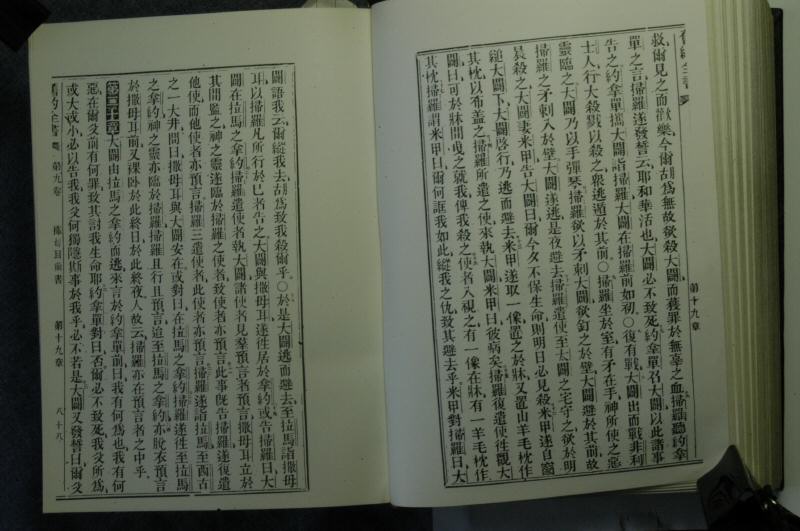 第十九章
救爾見之而歡樂今爾胡爲無故欲殺大闢而獲罪於無辜之血掃羅聽約拿
單之言掃羅遂發誓云耶和華活也大闢必不致死約拿單召大闢以此諸事
告之約拿單攜大闢詣掃羅大闢在掃羅前如初○復有戰大闢出而戰非利
士人行大殺戮以殺之衆逃遁於其前○掃羅坐於室有矛在手神所使之惡
靈臨之大闢乃以手彈琴掃羅欲以矛刺大闢欲釘之於壁大闢避於其前故
掃羅之矛刺入於壁大闢遂逃是夜避去掃羅遣使至大闢之宅守之欲於明
晨殺之大闢妻米甲告大闢曰爾今夕不保生命則明日必見殺米甲遂自窗
縋大闢下大闢啓行乃逃而避去米甲遂取一像置之於牀又置山羊毛枕作
其枕以布蓋之掃羅所遣之使來執大闢米甲曰彼病矣掃羅復遣使徃觀大
闢曰可於牀間曳之就我俾我殺之使者入視之有一像在牀有一羊毛枕作
其枕掃羅謂米甲曰爾何誆我如此縱我之仇致其避去乎米甲對掃羅曰大
闢語我云爾縱我去胡爲致我殺爾乎○於是大闢逃而避去至拉馬詣撒母
耳以掃羅凡所行於己者告之大闢與撒母耳遂徃居於拿約或告掃羅曰大
闢在拉馬之拿約掃羅遣使者執大闢諸使者見羣預言者預言撒母耳立於
其間監之神之靈遂臨於掃羅之使者致使者亦預言此事旣告掃羅遂復遣
他使而他使者亦預言掃羅三遣使者此使者亦預言掃羅遂詣拉馬至西古
之一大井問曰撒母耳與大闢安在或對曰在拉馬之拿約掃羅遂徃至拉馬
之拿約神之靈亦臨於掃羅掃羅且行且預言迨至拉馬之拿約亦脫衣預言
於撒母耳前又裸臥於此終日於此終夜人故云掃羅亦在預言者之中乎
第二十章大闢由拉馬之拿約而逃來言於約拿單前曰我有何爲也我有何
惡在爾父前有何罪致其討我生命耶約拿單對曰否爾必不致死我父所爲
或大或小必以告我我父何獨隱斯事於我乎必不若是大闢又發誓曰爾父
舊約全書 第九卷 第十九章 八十八